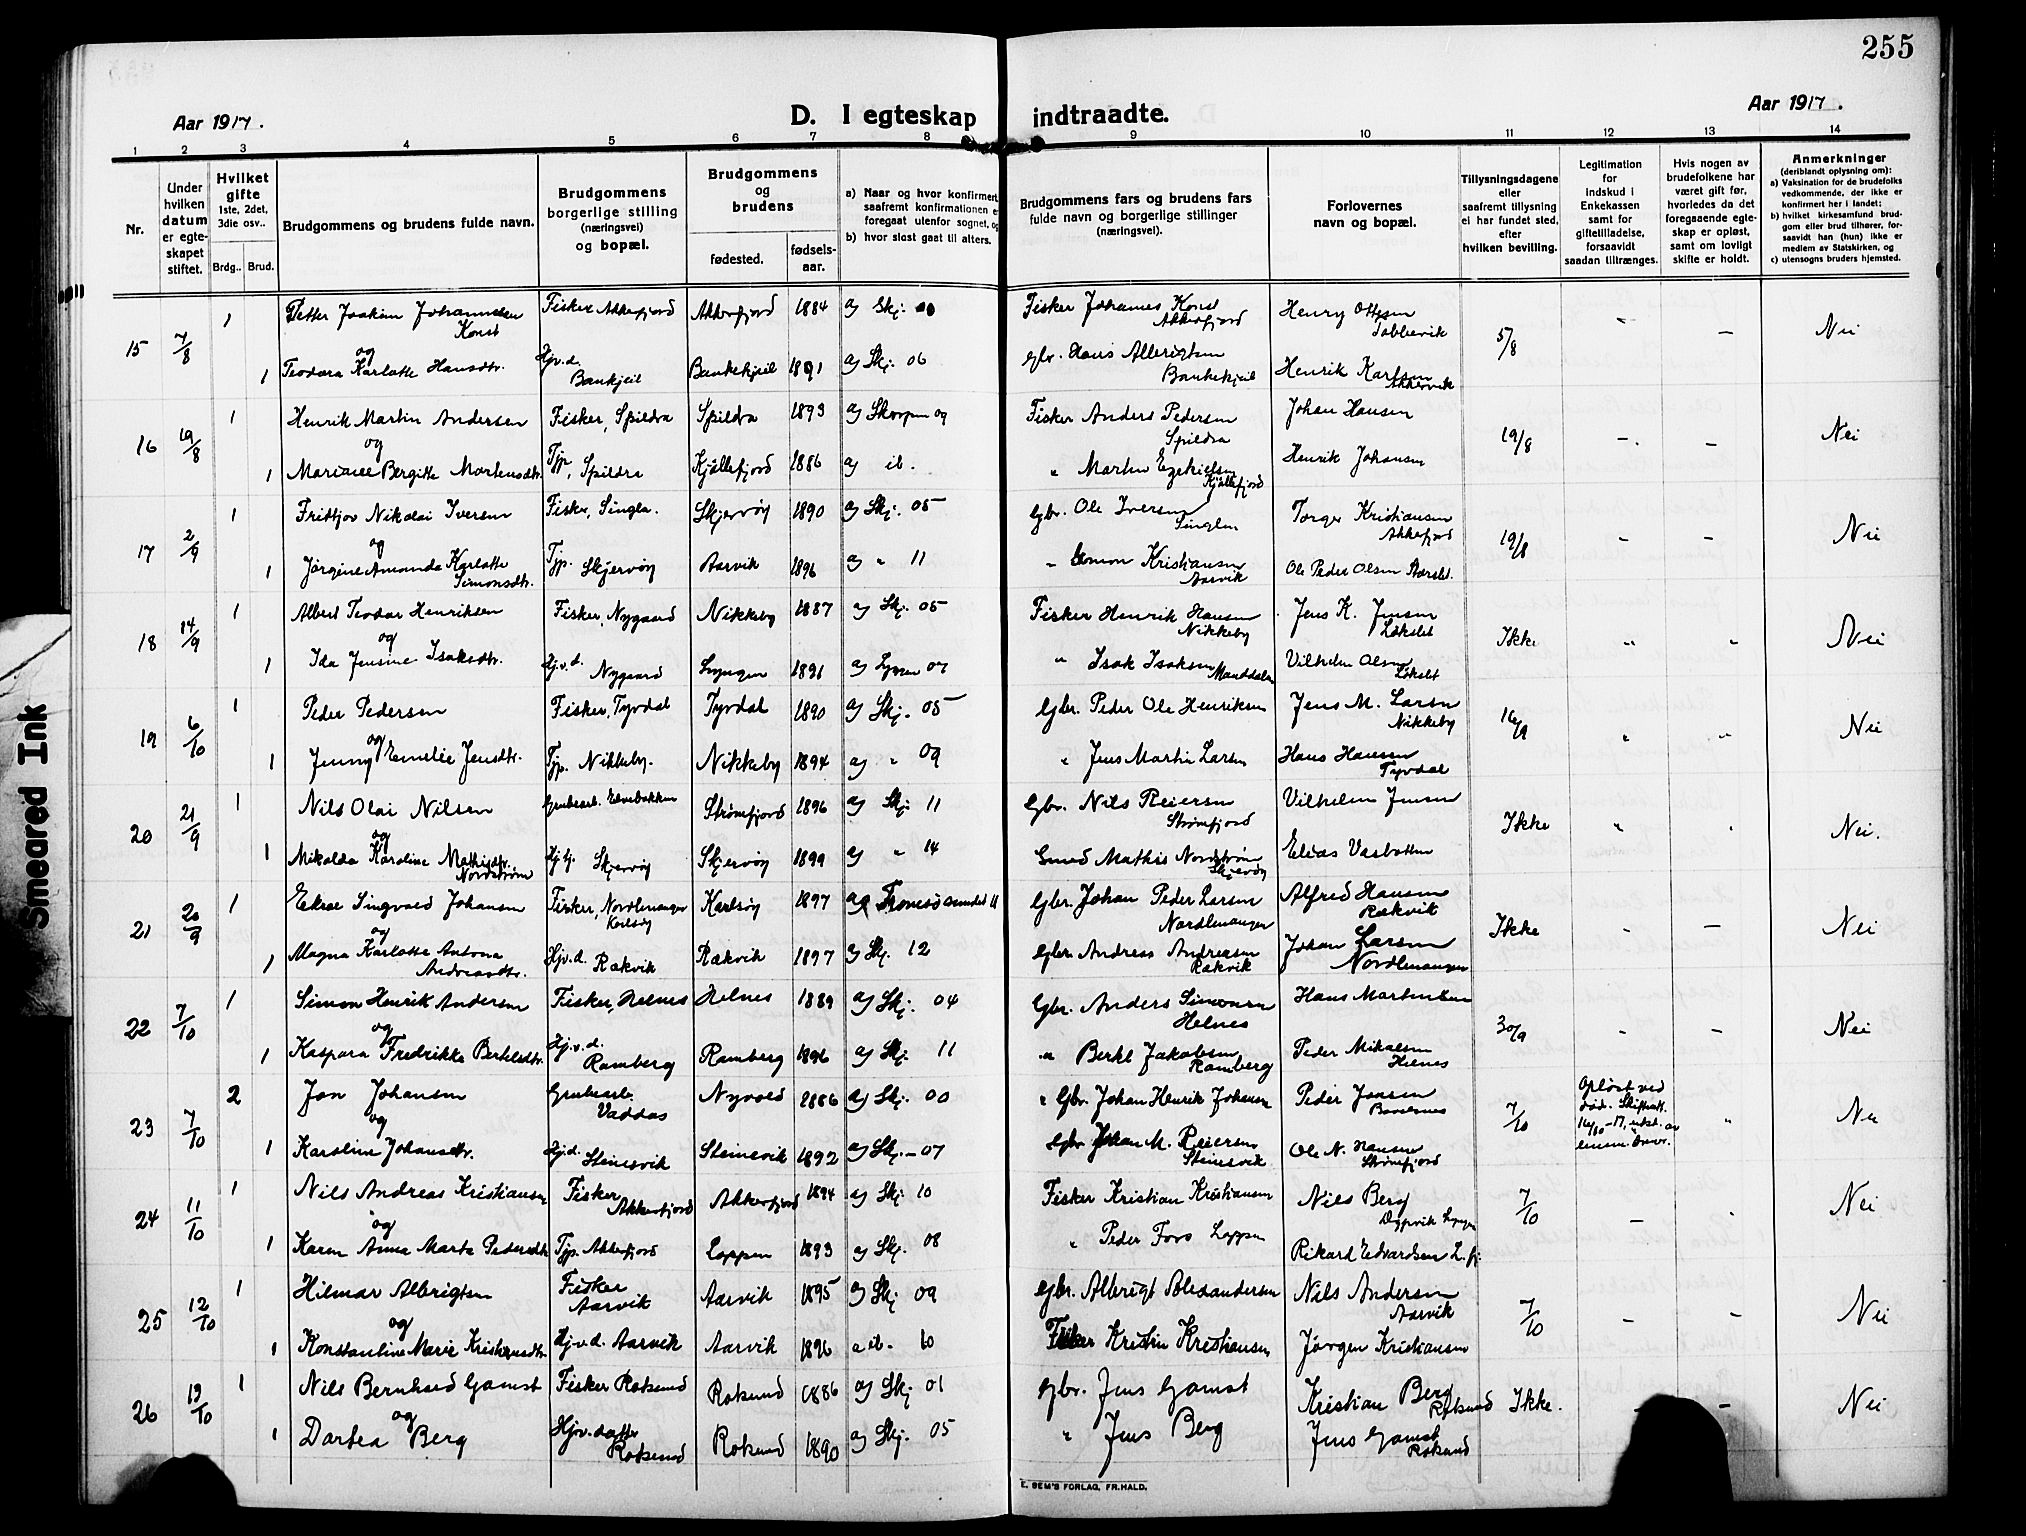 255
Aar 1917.
D. I egteskap indtraadte.
Aar 1917.
1 2 3 4 5 6 7 8 9 10 11 12 13 14
Nr.
Under hvilken datum er egte-skapet stiftet.
Hvilket gifte 1ste, 2det, 3die osv..
Brdg.. Brud.
Brudgommens og brudens fulde navn.
Brudgommens borgerlige stilling (næringsvei) og bopæl.
Brudgommens og brudens
fødested. fødsels-aar.
a) Naar og hvor konfirmert, saafremt konfirmationen e foregaat utenfor sognet, og
b) hvor sidst gaat til alters.
Brudgommens fars og brudens fars fulde navn og borgerlige stillinger (næringsvei).
Forlovernes navn og bopæl.
Tillysningsdagene eller saafremt tillysning ei har fundet sted, efter hvilken bevilling.
Legitimation for indskud i Enkekassen samt for giftetilladelse, forsaavidt saadan tiltrænges.
Hvis nogen av brudefolkene har været gift før, hvorledes da det foregaaende egte-skap er opløst, samt om lovligt skifte er holdt.
Anmerkninger (deriblandt oplysning om):
a) Vaksination for de brudefolks vedkommende, der ikke er konfirmert her i landet;
b) hvilket kirkesamfund brud-gom eller brud tilhører, for-saavidt han (hun) ikke er medlem av Statskirken, og
c) utensogns bruders hjemsted.
15 7/8 1 Petter Joakim Johannesen Konst Fisker Akkarfjord Akkarfjord 1884 a) Skj. 00 Fisker Johannes Konst Akkarfjord Henry Ottesen 5/8 " — Nei
og
1 Teodora Karlotte Hansdtr. Hjv.d. Bankekjeil 1891 a) Skj. 06 Gbr. Hans Albrigtsen Bankekjeil Henrik Karlsen Akkarvik
16 19/8 1 Henrik Martin Andersen Fisker, Spildra Spildra 1893 a) Skorpen 09 Fisker Anders Pedersen Spildra Johan Hansen 19/8 — — Nei
og
1 Bergitte Mortensdtr. Tjp, Spildra Kjöllefjord 1886 a) ib. " Martin Ezekielsen Kjöllefjord Henrik Johansen
17 2/9 1 Fridtjov Nikolai Iversen Fisker, Singla. Skjervöy 1890 a) Skj. 05 Gbr. Ole Iversen Singlen Torger Kristiansen Akkefjord 19/8 — — Nei
og
1 Jørgine Amanda Karlotte Simonsdtr. Tjp. Skjervöy Aarvik 1896 a) " 11 " Simon Kristiansen Aarvik Ole Peder Olsen
18 14/9 1 Albert Teodor Henriksen Fisker, Nygaard Nikkeby 1887 a) Skj. 05 Fisker Henrik Hansen Nikkeby Jens K. Jensen Løkslet Ikke " " Nei
og
1 Ida Jensine Isaksdtr. Hj.v.d. Nygaard Lyngen 1891 a) Lyngen 07 " Isak Isaksen Manddalen Vilhelm Olsen Løkslet
19 6/10 1 Peder Pedersen Fisker, Tyvdal Tyvdal 1890 a) Skj. 05 Gbr. Peder Ole Henriksen Jens M. Larsen Nikkeby 16/9 " " Nei
og
1 Jenny Emelie Jensdtr. Tjp. Nikkeby. Nikkeby 1894 a) " 09 " Jens Martin Larsen Hans Hansen Tyvdal
20 21/9 1 Nils Olai Nilsen Grubearb. Elvebakken Strømfjord 1896 a) Skj. 11 Gbr. Nils Reiersen Strømfjord Vilhelm Jensen Ikke " . Nei.
og
1 Mikalda Karoline Mathisdtr. Nordstrøm Skjervöy Skjervöy 1899 a) " 14 Smed Mathis Nordstrøm Skjervöy Elias Vasbotten
21 20/9 1 Singvald Johansen Fisker, Nordlenangen Karlsöy Karlsöy 1897 a) Tromsösundet 11 Gbr. Johan Peder Larsen Nordlenangen Alfred Hansen Rakvik Ikke — — Nei
og
1 Magna Karlotte Antona Andreasdtr. Hjv.d. Rakvik Rakvik 1897 a) Skj. 12 Gbr. Andreas Andreasen Rakvik Johan Larsen Nordlenangen
22 7/10 1 Simon Henrik Andersen Fisker, Helnes Helnes 1889 a) Skj. 04 Gbr. Anders Simonsen Helnes Hans Martinsen 30/9 — — Nei
og
1 Kaspara Fredrikke Bertelsdtr. Hj.v.d. Ramberg Ramberg 1896 a) Skj. 11 " Bertel Jakobsen Ramberg Peder Mikalsen Helnes
23 7/10 2 Jon Johansen Grubearb. Vaddas Nyvold 1886 a) Skj. 00 " Gbr. Johan Henrik Johansen Peder Jonsen 7/10 Opløst ved död. Skifteatt. 16/10-17, " Nei
og
1 Karoline Johansdtr. Hj.d. Steinesvik Steinesvik 1892 a) Skj. — 07 Gbr. Johan M. Reiersen Steinesvik Ole N. Hansen Strømfjord
24 11/10 1 Nils Andreas Kristiansen Fisker Akkarfjord Akkarfjord 1894 a) Skj. 10 Fisker Kristian Kristiansen Nils Berg Lyngen 7/10 — . Nei
og
1 Karen Anna Marta Pedersdtr. Tjp. Akkarfjord Loppen 1893 a) Skj. 08 " Peder Fors Loppen Rikard Edvardsen L.fj.
25 12/10 1 Hilmar Albrigtsen Fisker Aarvik Aarvik 1895 a) Skj. 09 Gbr. Albrigt Aleksandersen Nils Andersen Aarvik 7/10 — — Nei
og
1 Konstantine Marie Kristiansdtr. Hj.v.d. Aarvik Aarvik 1896 a ib. 10 Fisker Kristin Kristiansen Jörgen Kristiansen
26 19/10 1 Nils Bernhard Gamst Fisker Rotsund Rotsund 1886 a) Skj. 01 Gbr. Jens Gamst Kristian Berg Rotsund Ikke. — — Nei
og
1 Dortea Berg Hjv.datter Rotsund Rotsund 1890 a) Skj. 05 " Jens Berg Jens Gamst Rotsund
E. SEM'S FORLAG, FR.HALD.
Smeared Ink